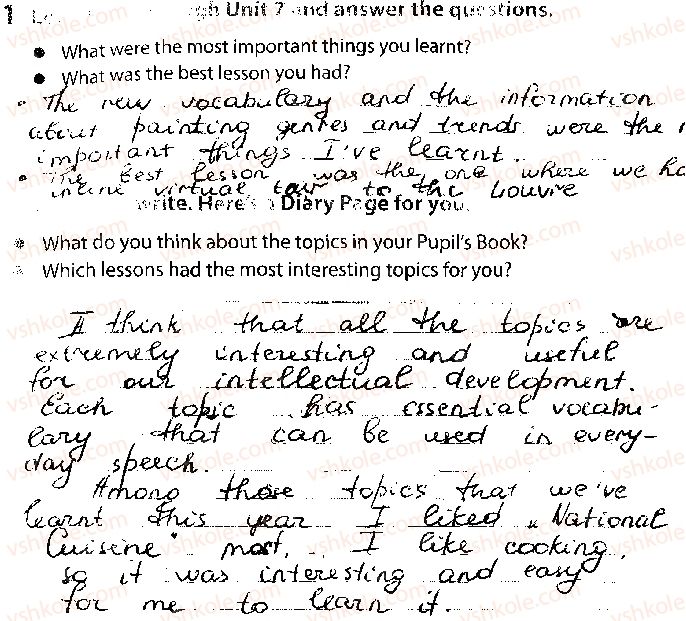 1 gh Unit 7 and answer the questions.
• What were the most important things you learnt?
• What was the best lesson you had?
• The new vocabulary and the information
about painting genres and trends were the
important things I've learnt.
• The best lesson was the one where we ha
inline virtual tour to the Louvre
write. Here's a Diary Page for you.
• What do you think about the topics in your Pupil's Book?
• Which lessons had the most interesting topics for you?
I think that all the topics are
extremely interesting and useful
for our intellectual development.
Each topic has essential vocabu-
lary that can be used in every-
day speech.
Among those topics that we've
learnt this year I liked „National
Cuisine" most. I like cooking,
so it was interesting and easy
for me to learn it.